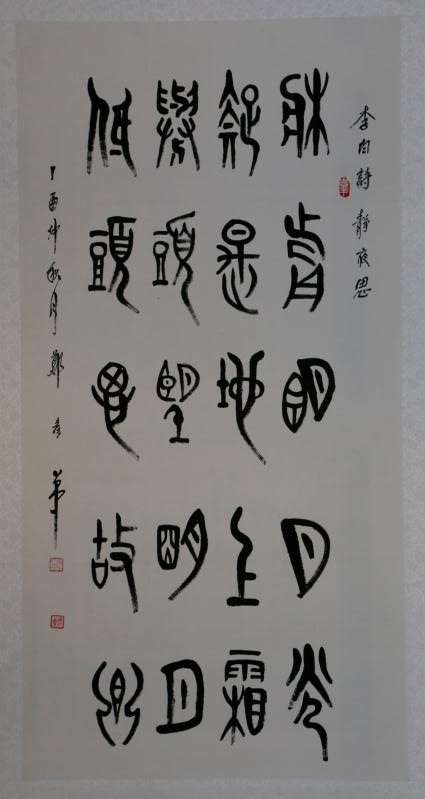 李白詩 靜夜思
牀前明月光
疑是地上霜
舉頭望明月
低頭思故鄉
丁酉仲秋月 鄭彦